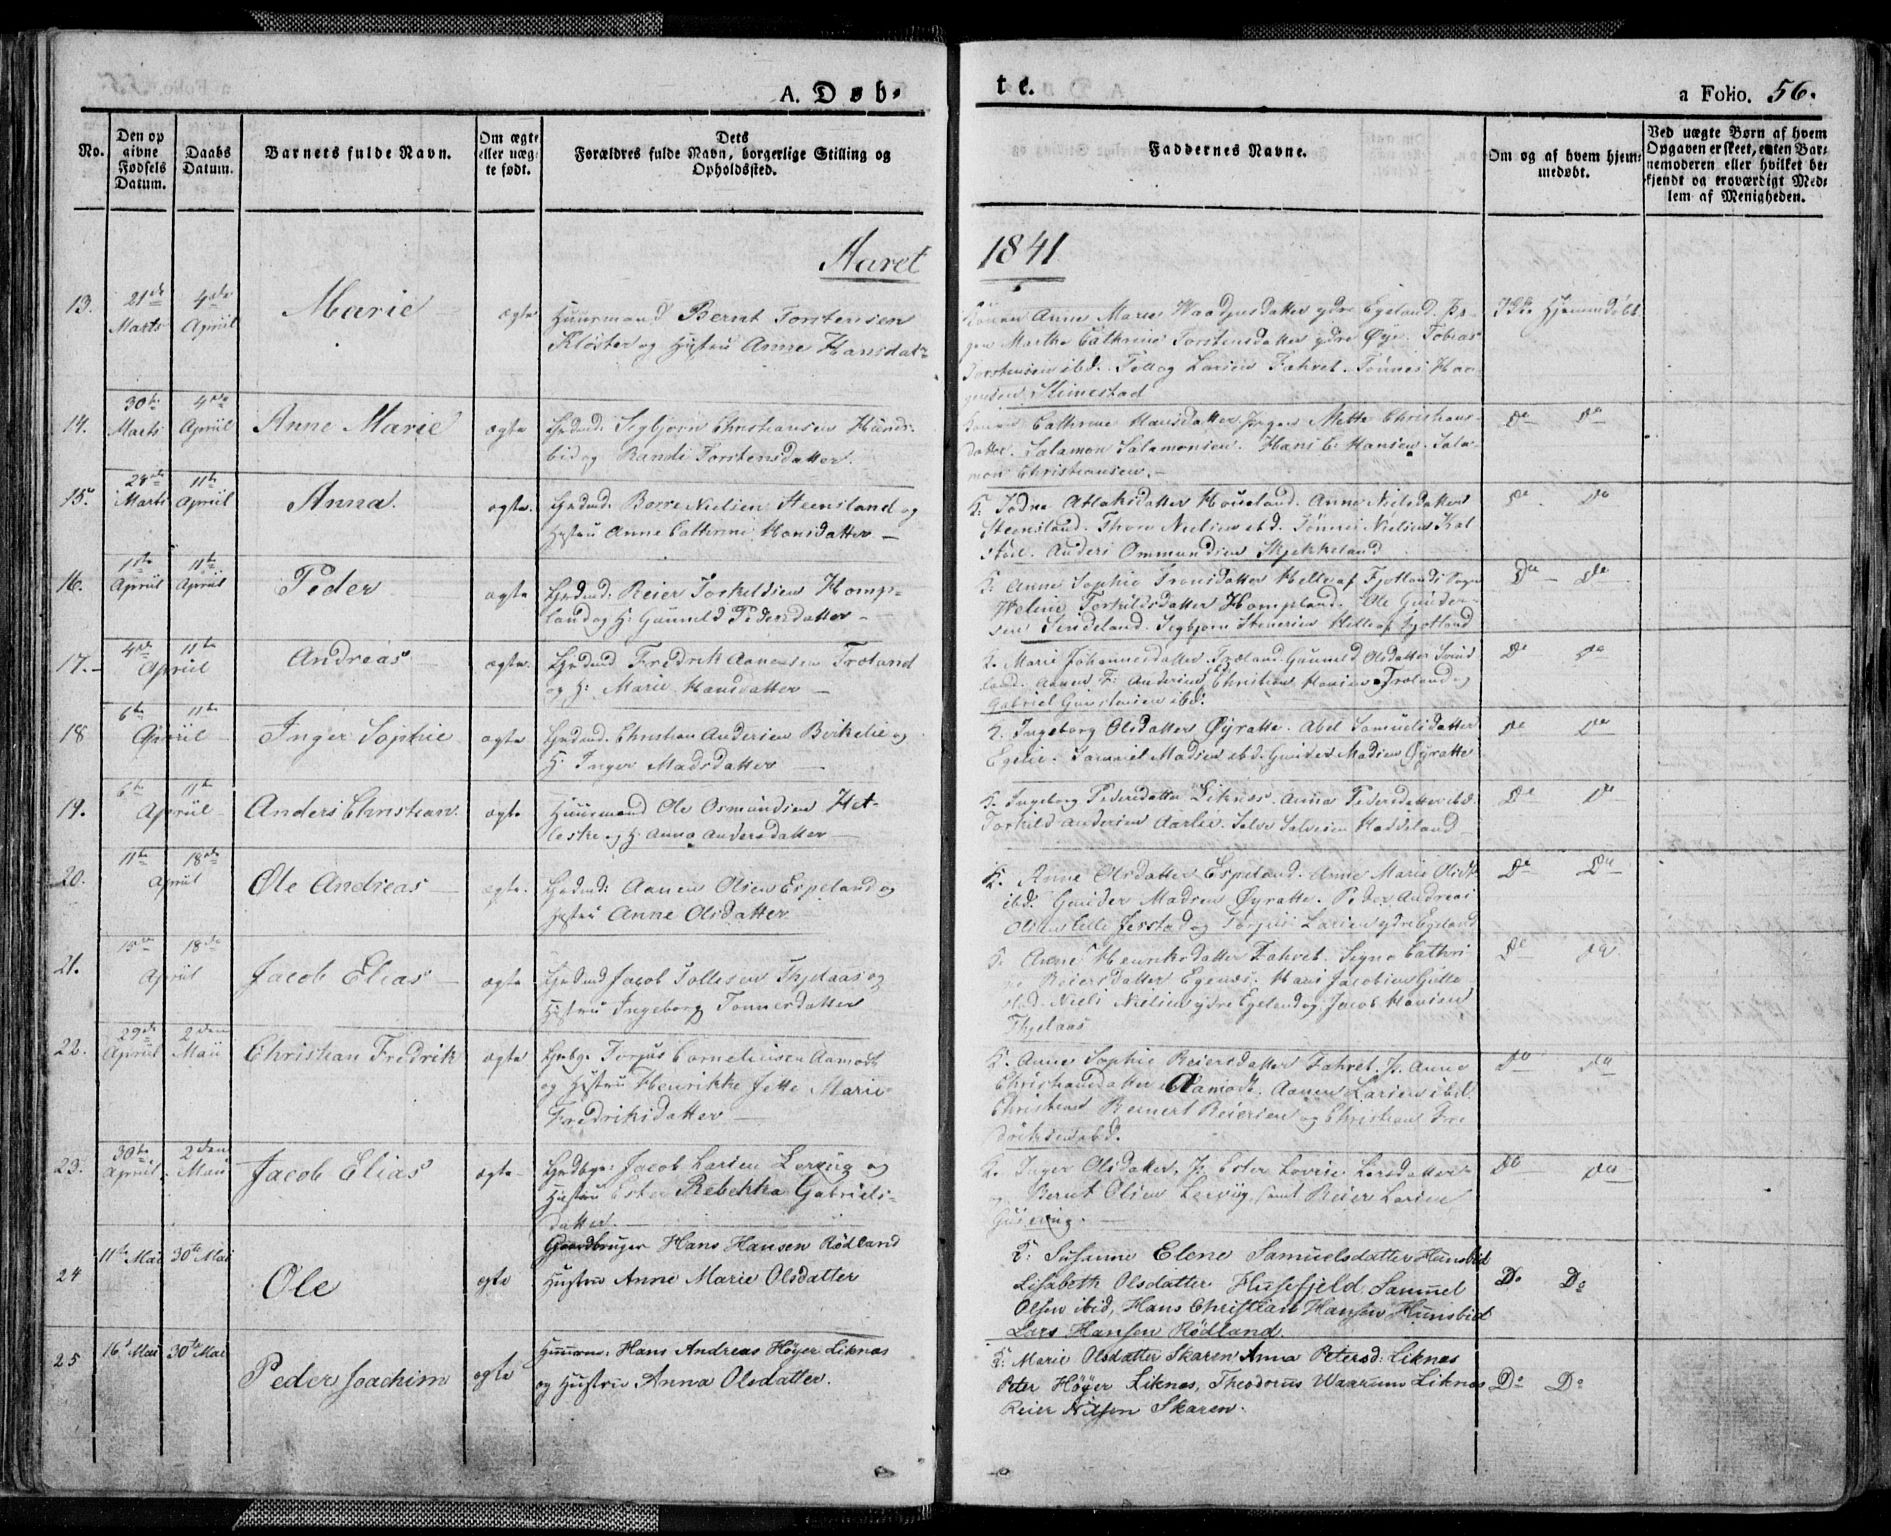 A. Døb-
te.
a Folio. 56.
No.
Den op
givne
Fødsels
Datum.
Daabs
Datum.
Barnets fulde Navn.
Om ægte
eller uæg-
te født.
Dets
Forældres fulde Navn, borgerlige Stilling og
Opholdssted.
Faddernes Navne.
Om og af hvem hjem-
medøbt.
Ved uægte Børn af hvem
Opgaven er skeet, enten Bar-
nemoderen eller hvilket be-
kjendt og troværdigt Med-
lem af Menigheden.
Aaret 1841
13.
21de
Marts
4de
April
Marie
ægte
Huusmand Bernt Torstensen
Kloster og Hustru Anne Hansdat-
Konen Anne Marie Waadjusdatter ydre Egeland. Pi-
gen Marthe Cathrine Torstensdatter ydre Øye. Tobias
Torstensen ibd. Tollag Larsen Fahret. Tønnes Haa-
Stimestad
Ikke Hjemmedøbt
14.
30te
Marts
4de
April
Anne Marie
ægte
Grdmd: Sigbjørn Christiansen Hunds-
bid og Randi Torstensdatter.
Konen Cathrine Hansdatter, Pigen Mette Christians-
datter. Salamon Salamonsen. Hans C. Hansen. Sala-
mon Christiansen.
Do Do
15.
24de
Marts
11te
April
Anna.
ægte.
Grdmd: Borre Nielsen Steensland og
Hustru Anne Cathrine Hansdatter
K. Todne Atlaksdatter Houeland. Anne Nielsdatter
Steensland. Thore Nielsen ibd. Tønnes Nielsen Kal-
støe. Anders Ommundsen Skjekkeland
Do Do
16.
1ste
April
11te
April
Peder
ægte
Grdmd: Reier Torkildsen Homp-
land og H: Gunnild Pedersdatter
K: Anne Sophie Tronsdatter Helle af Fjotlands Sogn
Heline Torkildsdatter Hompland. Ole Gunder-
sen Sindeland. Sigbjørn Stenersen Helle af Fjotland
Do Do
17.
4de 11te
April
Andreas
ægte.
Grdmd Fredrik Aanensen Træland
og H: Marie Hansdatter
K. Marie Johannesdatter Træland. Gunnild Olsdatter Svind-
land. Aanen F: Andersen ibd Christian Hansen Træland og
Gabriel Gunstensen ibd.
Do Do
18
6te 11te
April
Inger Sophie
ægte
Grdmd: Christian Andersen Birkelie og
H: Inger Madsdatter
K. Ingeborg Olsdatter Øyratte. Abel Samuelsdatter
Egelie. Samuel Madsen ibd. Gunder Madsen Øyratte
Do Do
19.
6te 11te
April
Anders Christian.
ægte
Huusmand Ole Osmundsen Het-
leske og H: Anna Andersdatter
K. Ingeborg Pedersdatter Liknes. Anna Pedersdatter ibd.
Torkild Andersen Aarlie. Salve Salvesen Haddeland
Do Do
20.
11te 18de
April
Ole Andreas
ægte.
Grdmd: Aanen Olsen Espeland og
Hustru Anne Olsdatter
K. Anne Olsdatter Espeland. Anne Marie Olsdt.
ibd. Gunder Madsen Øyratte. Peder Andreas
Olsen Lille Jerstad og Torjus Larsen ydre Egeland
Do Do
21.
15de 18de
April
Jacob Elias
ægte
Grdmd Jacob Tollesen Thjelaas og
Hustru Ingeborg Tønnesdatter
K. Anne Henriksdatter Fahret. Signe Cathri-
ne Reiersdatter Egenes. Hans Jacobsen Gulle
ibd. Niels Nielsen ydre Egeland og Jacob Hansen
Thjelaas
Do Do
22.
29de
April
2den
Maii
Christian Fredrik
ægte
Grdbg. Torjus Corneliusen Aamodt
og Hustru Henrikke Jette Marie
Fredriksdatter
K. Anne Sophie Reiersdatter Fahret. P. Anne
Christiansdatter Aamodt. Aanen Larsen ibd.
Christian Reinert Reiersen og Christian Fre-
driksen ibd.
Do Do
23.
30te
April
2den
Maii
Jacob Elias
ægte
Grdbgr: Jacob Larsen Lervig og
Hustru Ester Rebekka Gabriels-
datter.
K. Inger Olsdatter, P. Ester Lovise Larsdatter
Bernt Olsen Lervig, samt Reier Larsen
Do Do
24
11te Mai
30te Mai
Ole
ægte
Gaardbruger Hans Hansen Rødland
Hustru Anne Marie Olsdatter
F: Susanne Elene Samuelsdatter Hunsbid
Lisabeth Olsdatter Husefjeld, Samuel
Olsen ibid, Hans Christian Hansen Hunsbid
Lars Hansen Rødland.
Do Do
25
16d Mai
30te Mai
Peder Joachim
ægte
Huusm: Hans Andreas Höyer Liknes
og Hustru Anna Olsdatter.
F: Marie Olsdatter Skaren Anna Petersd: Liknes
Peter Høyer Liknes, Theodorus Waarum Liknes
Reier Nilsen Skaren.
Do Do